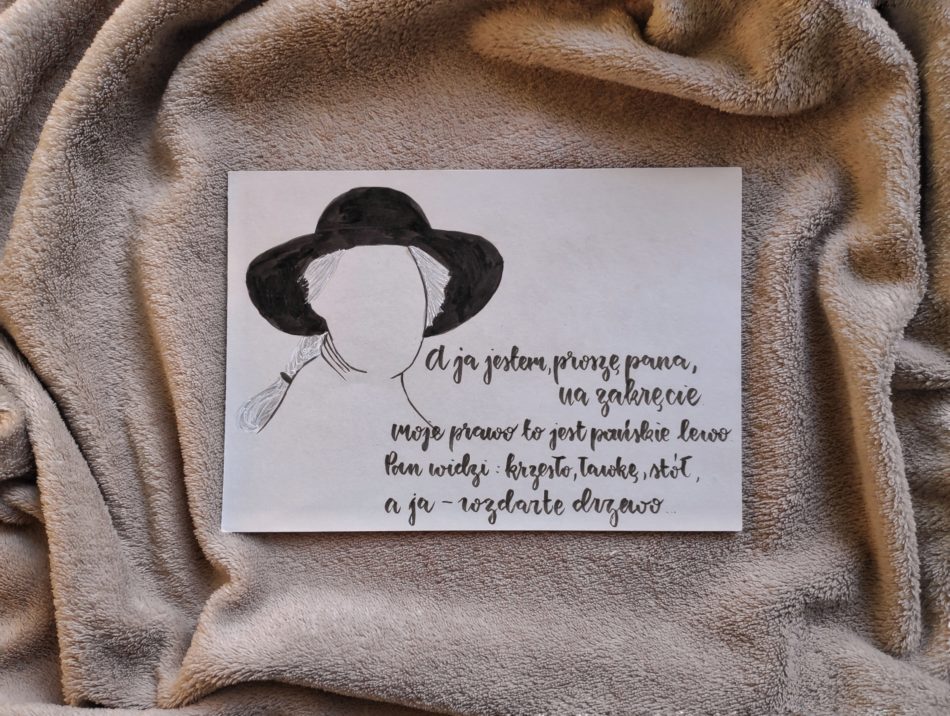 A ja jestem, proszę pana,
na zakręcie
moje prawo to jest pańskie lewo
Pan widzi: krzesło, ławkę, stół,
a ja - rozdarte drzewo...